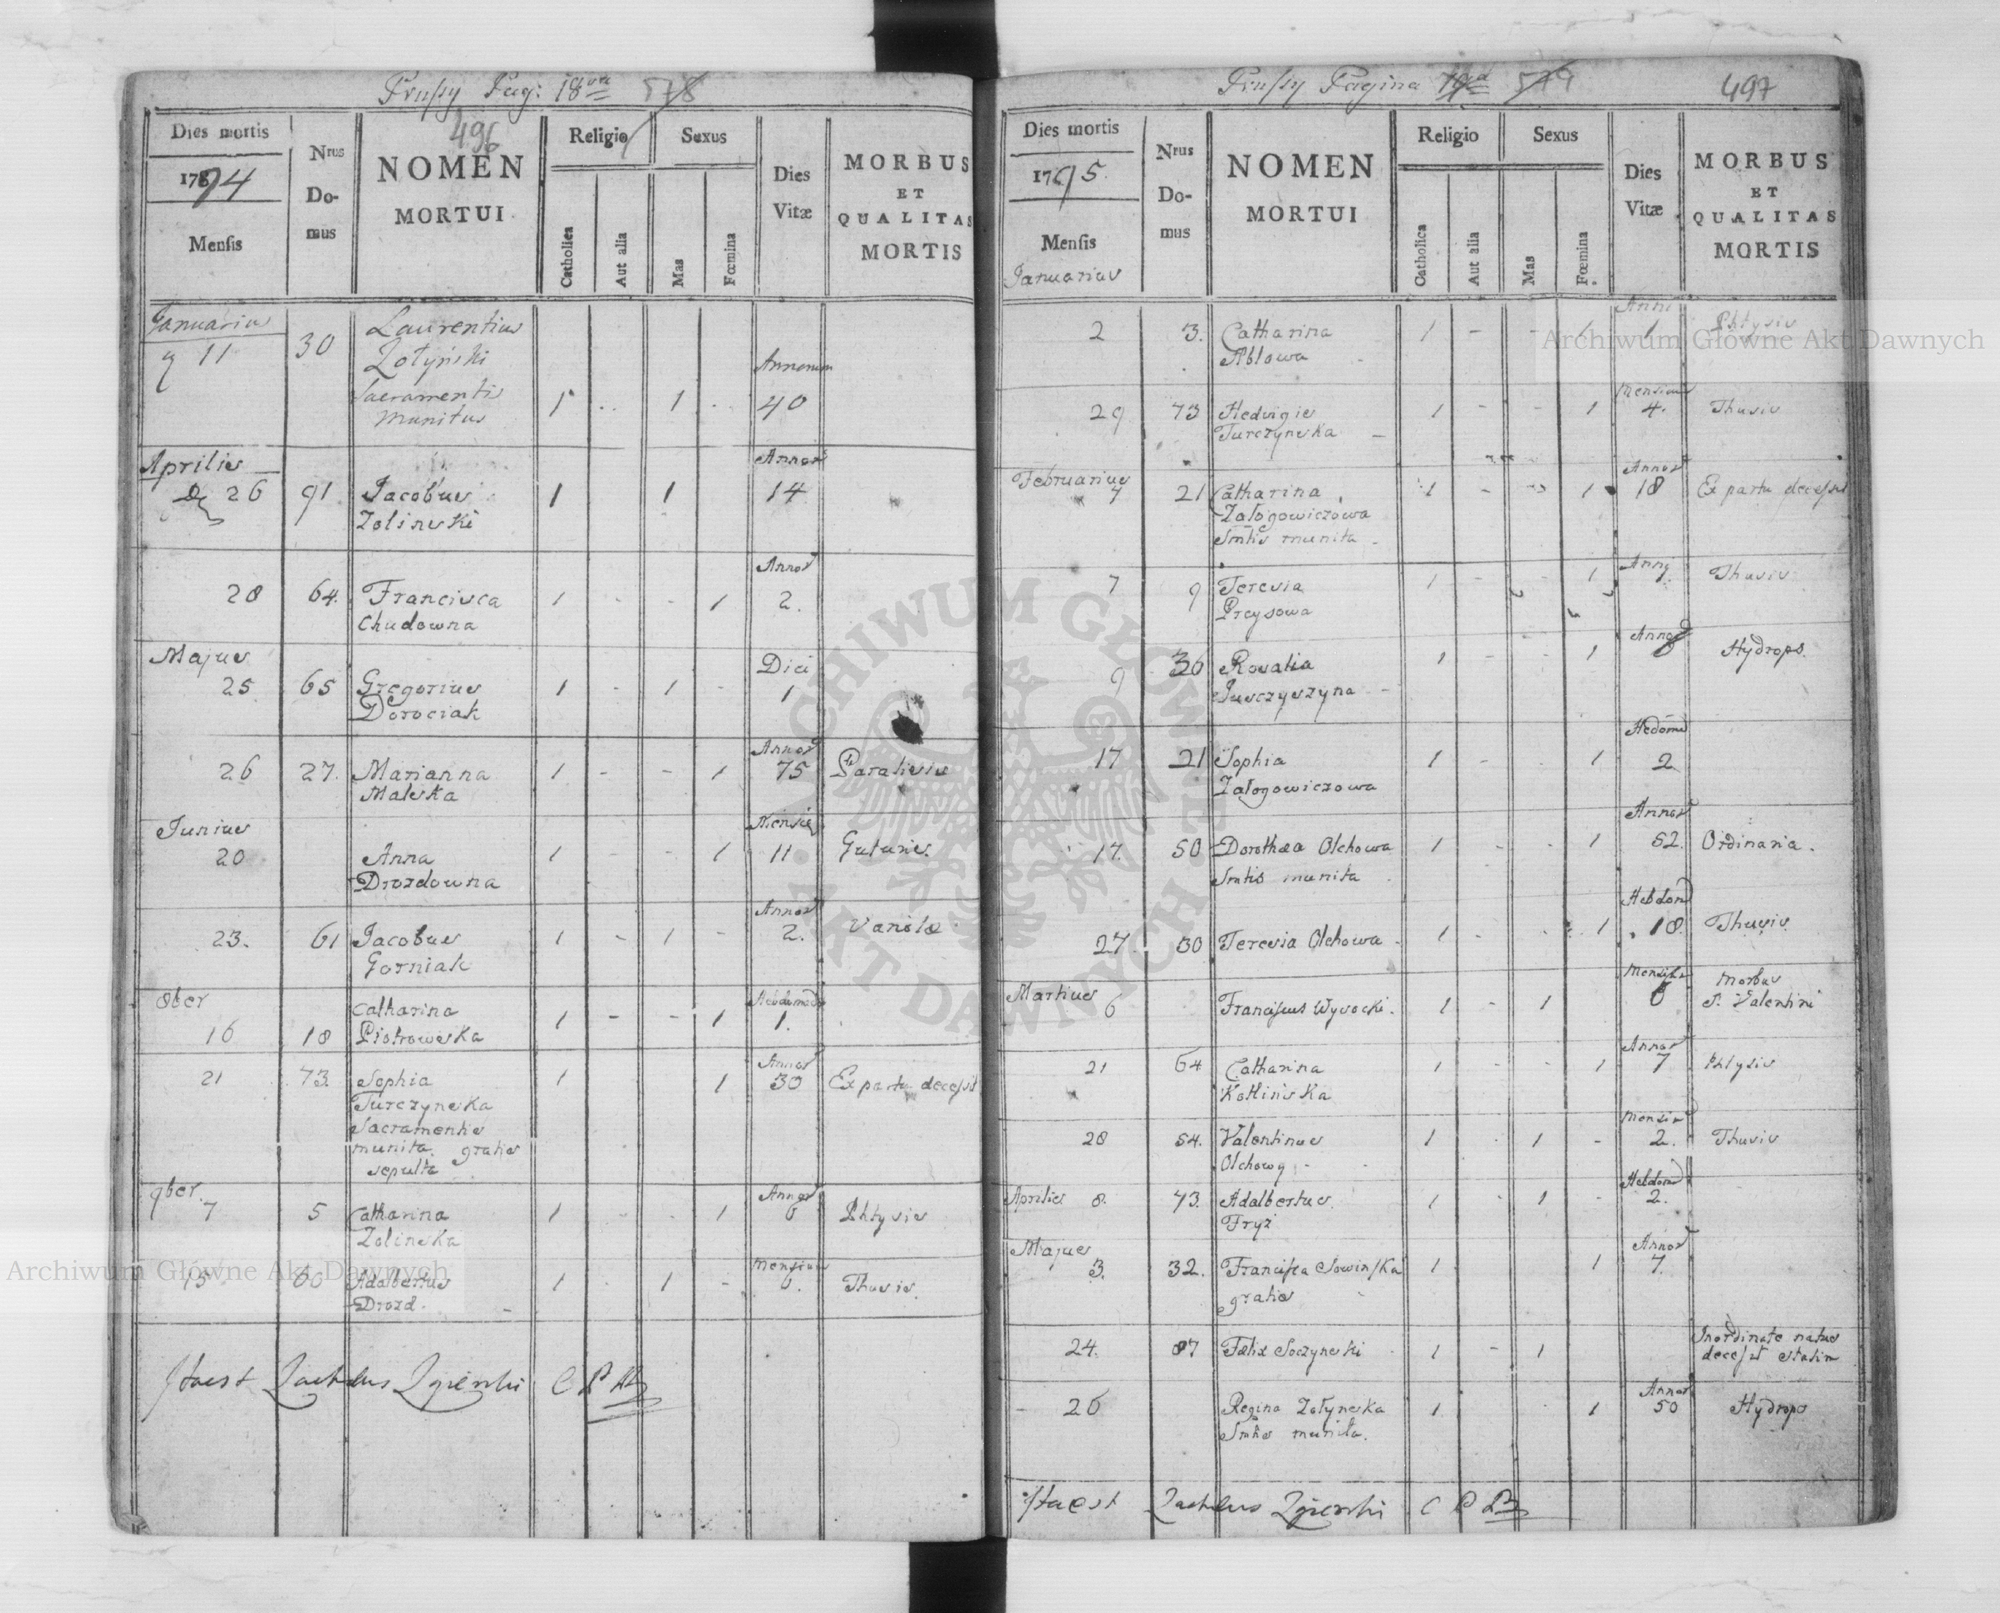 Prussy Pag: 18va 578
496
Dies mortis
1794
Mensis
Nrus
Do-
mus
NOMEN
MORTUI
Religio
Catholica
Aut alia
Sexus
Mas
Fœmina
Dies
Vitæ
MORBUS
ET
QUALITAS
MORTIS
Januarius
11 30 Laurentius
Zołyński Annorum
Sacramentis 1 .. 1 . 40
munitus
Aprilis Annor
26 91 Jacobus 1 1 14
Zolinski
Annor
28 64. Francisca 1 - - 1 2.
Chudowna
Majus Diei
25 65 Gregorius 1 - 1 - 1
Dorociak
Annor
26 27. Marianna 1 - - 1 75 Paralisis
Malska
Junius Mensiu
20 Anna 1 - - 1 11
Drozdowna
Annor
23. 61 Jacobus 1 - 1 - 2. Variolæ
Gorniak
8ber Catharina Hebdomada
16 18 Piotrowska 1 - - 1 1.
Annor
21 73. Sophia 1 1 30 Ex partu decessit
Turczynska
Sacramentis
munita gratis
sepulta
9ber. Annor
7 5 Catharina 1 - - 1 6 Phtysis
Zolinska
Mensium
15 60 Adalbertus 1 - 1 - 6. Thusis.
Drozd.
Zgierski C P
Prussy Pagina 19a 579 497
Dies mortis
1795.
Mensis
Januarius
Nrus
Do-
mus
NOMEN
MORTUI
Religio
Catholica
Aut alia
Sexus
Mas
Fœmina
Dies
Vitæ
MORBUS
ET
QUALITAS
MORTIS
Anni
2 3. Catharina 1 - - 1 1 Phtysis
Ablowa
Mensium
29 73 Hedvigis 1 - - 1 4. Thusis
Turczynska
Februarius Annor
7 21 Catharina 1 - - 1 18 Ex partu decessit
Załogowiczowa
Smtis munita
Anny
7 9 Teresia 1 - - 1 Thusis
Preysowa
Annor
9 36 Rosalia 1 - - 1 Hydrops.
Jusczyszyna
Hedom
17 21 Sophia 1 - 1 2
Załogowiczowa
Annor
17. 50 Dorothea Olchowa 1 - - 1 52. Ordinaria.
Smtis munita
Hebdom
27 50 Teresia Olchowa 1 - - 1 18. Thusis
Martius Morbus
6 Franciscus Wysocki. 1 - 1 6 S. Valentini
Annor
21 64 Catharina 1 - - 1 7 Phtysis
Kotlińska
Mensiu
28 54. Valentinus 1 1 - 2. Thusis
Olchowy
Hebdom
Aprilis 8. 73. Adalbertus 1 - 1 - 2.
Fryz
Majus Annor
3. 32. Francisca Sowinska 1 1 7.
gratis
Inordinate natus
24. 87 Felix Soczynski 1 - 1 decessit statim
Annor
26 Regina Zołynska 1 1 50 Hydrops
Smtis munita.
Zgierski C P
Archiwum Główne Akt Dawnych
Archiwum Główne Akt Dawnych
ARCHIWUM GŁÓWNE AKT DAWNYCH